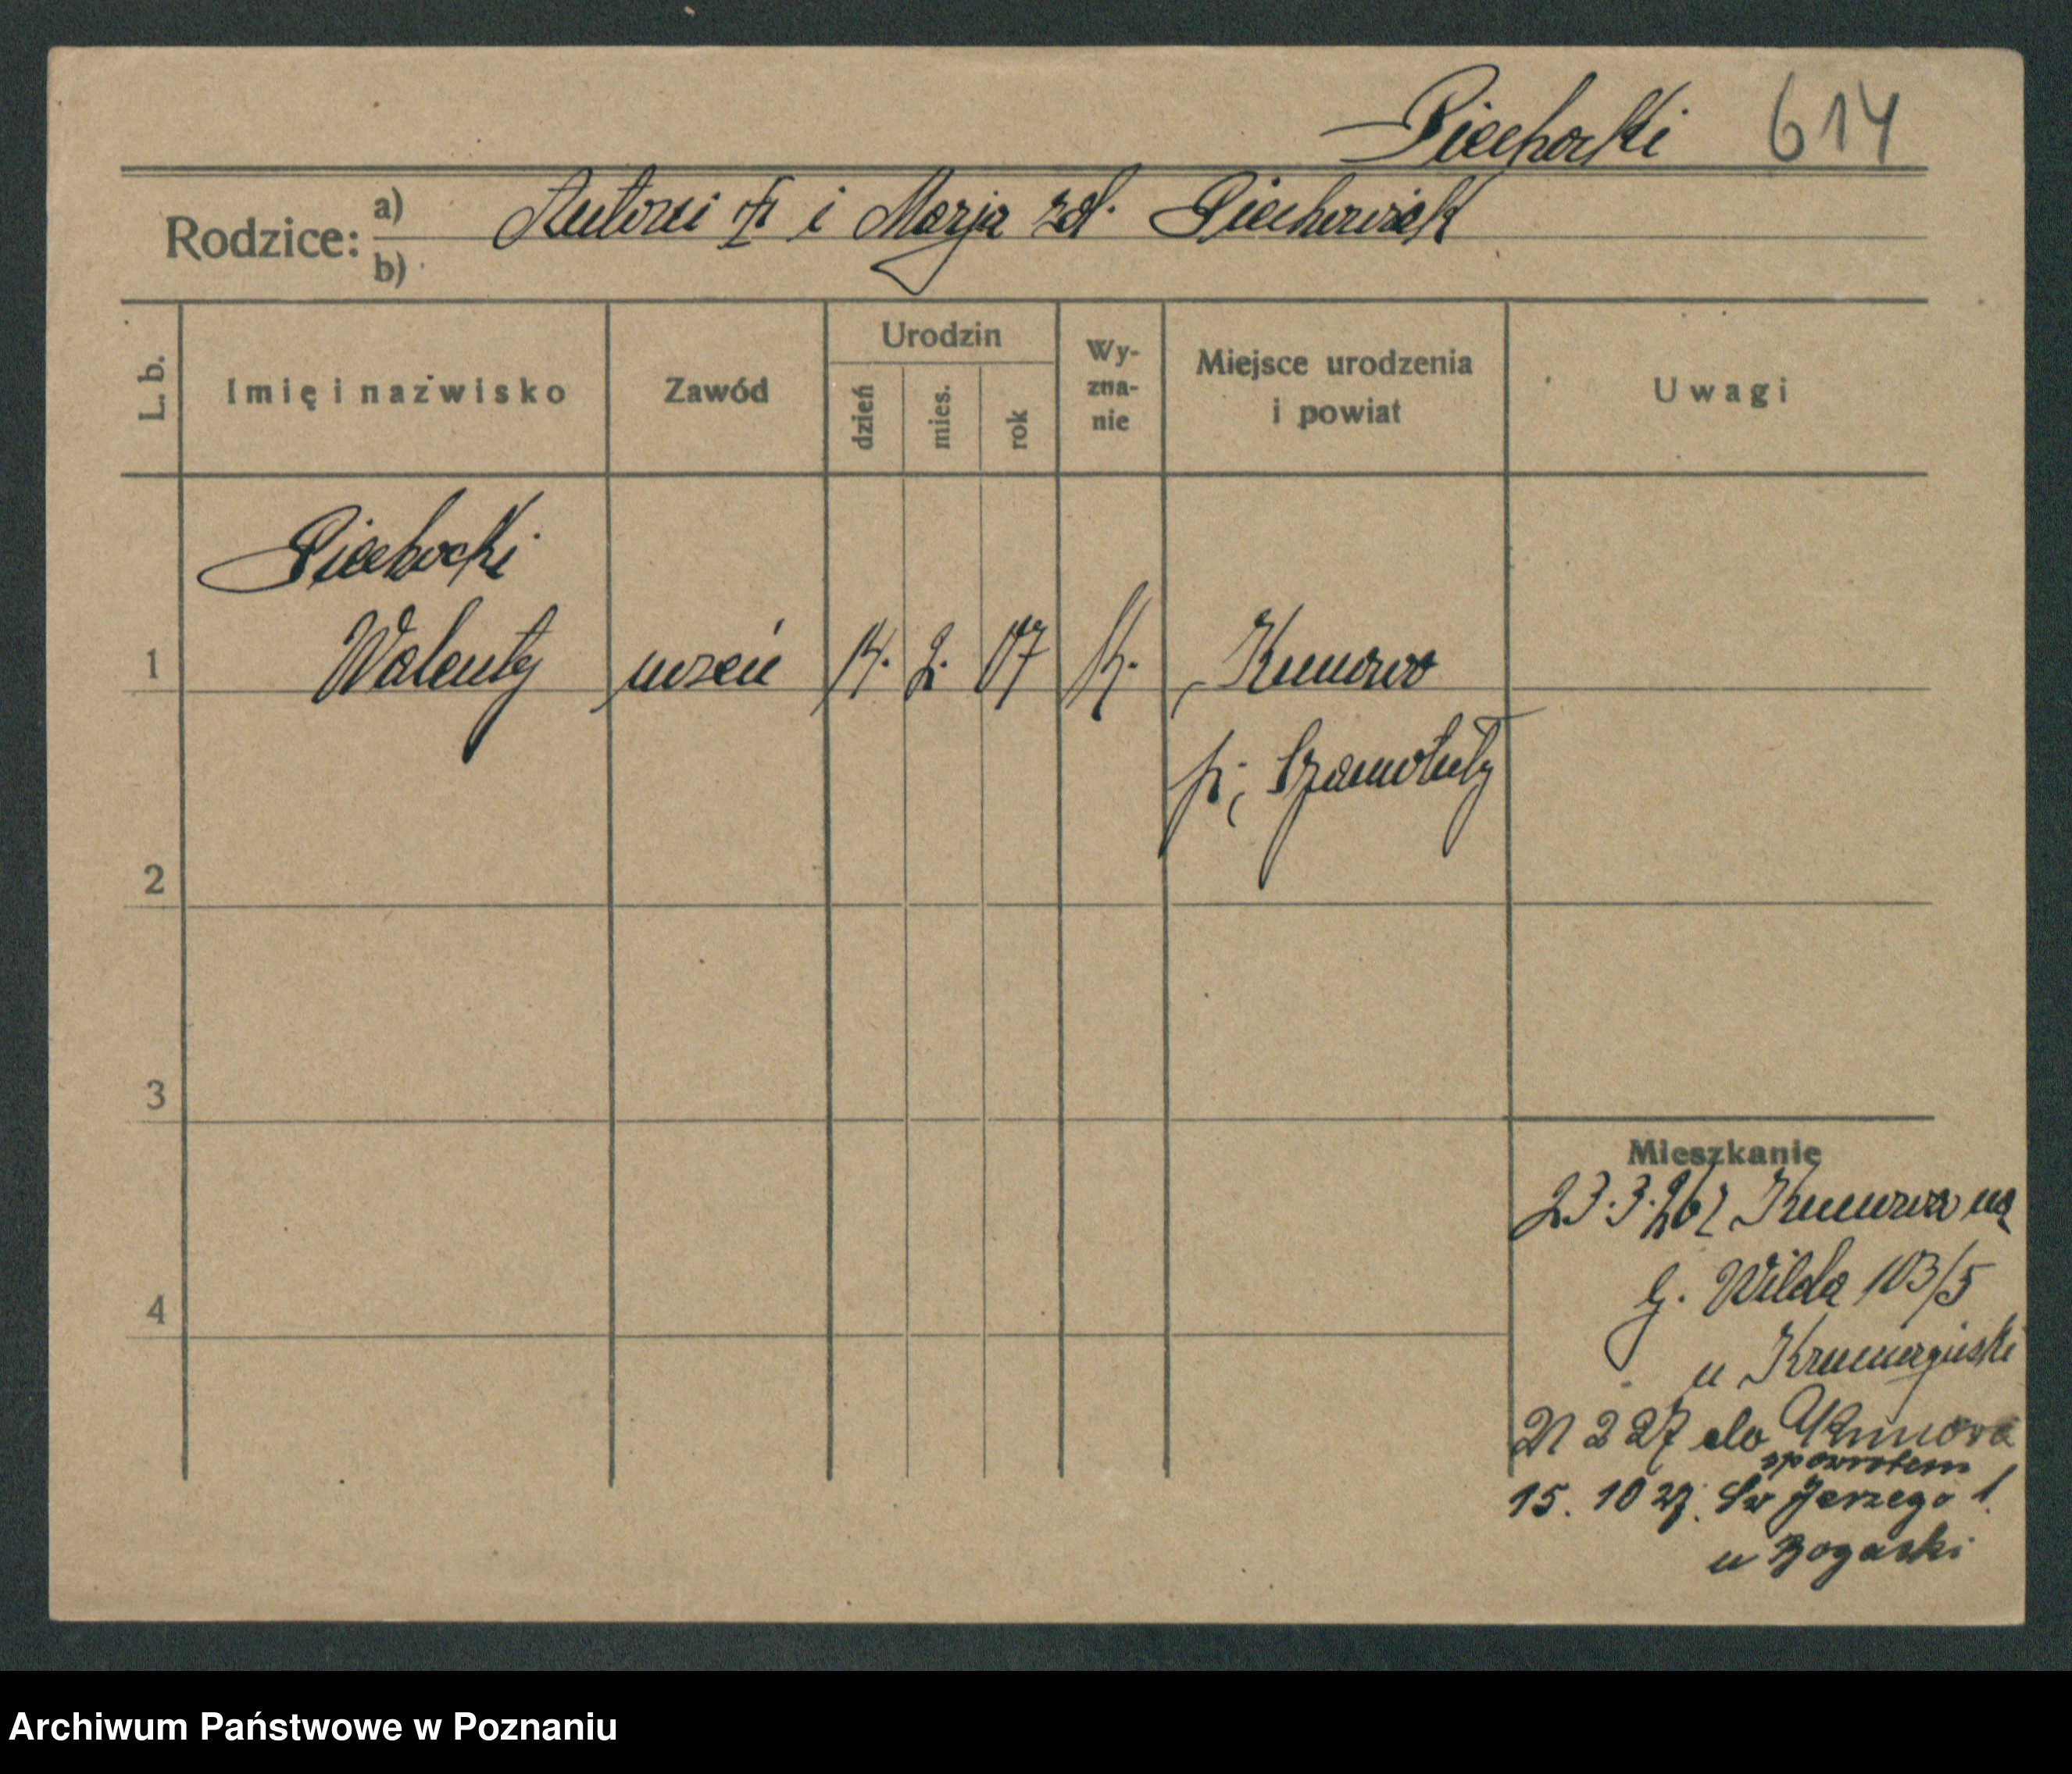 Piechocki 614
Rodzice: a) Antoni † i Marja zd. Piechowiak
b)
L. b. Imię i nazwisko Zawód Urodzin dzień mies. rok Wyznanie Miejsce urodzenia i powiat Uwagi
Piechocki
1 Walenty uczeń 14. 2. 07 k. Kunowo
p. Szamotuły
2
3
Mieszkanie
23.3.26 z Kunowa na
G. Wilda 103/5
4
u
21 2 27 do Kunowa
spowrotem
15. 10 27. Św Jerzego 1.
u Bogacki
Archiwum Państwowe w Poznaniu